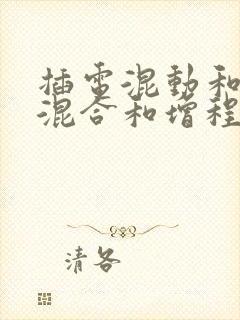 插电混動和
混合和增程
清各